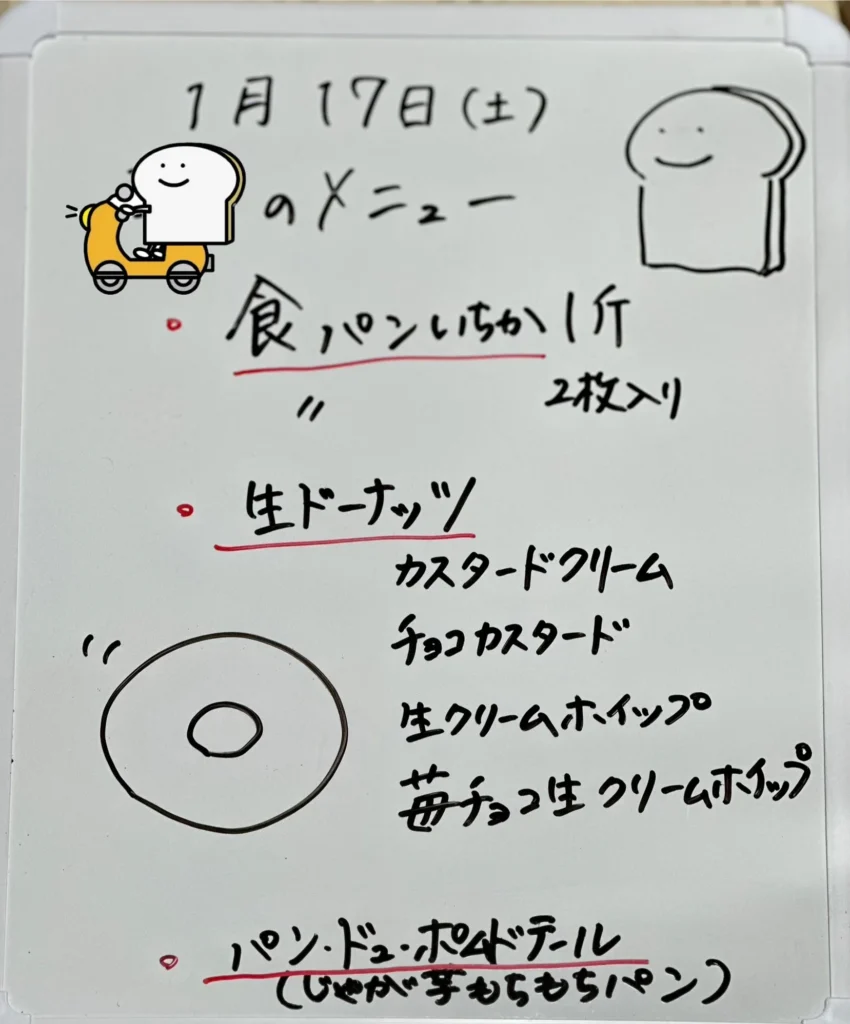 1月17日(土)
のメニュー
食パンいちか1斤
〃 2枚入り
生ドーナッツ
カスタードクリーム
チョコカスタード
生クリームホイップ
苺チョコ生クリームホイップ
パン・ドュ・ポムドテール
(じゃが芋もちもちパン)